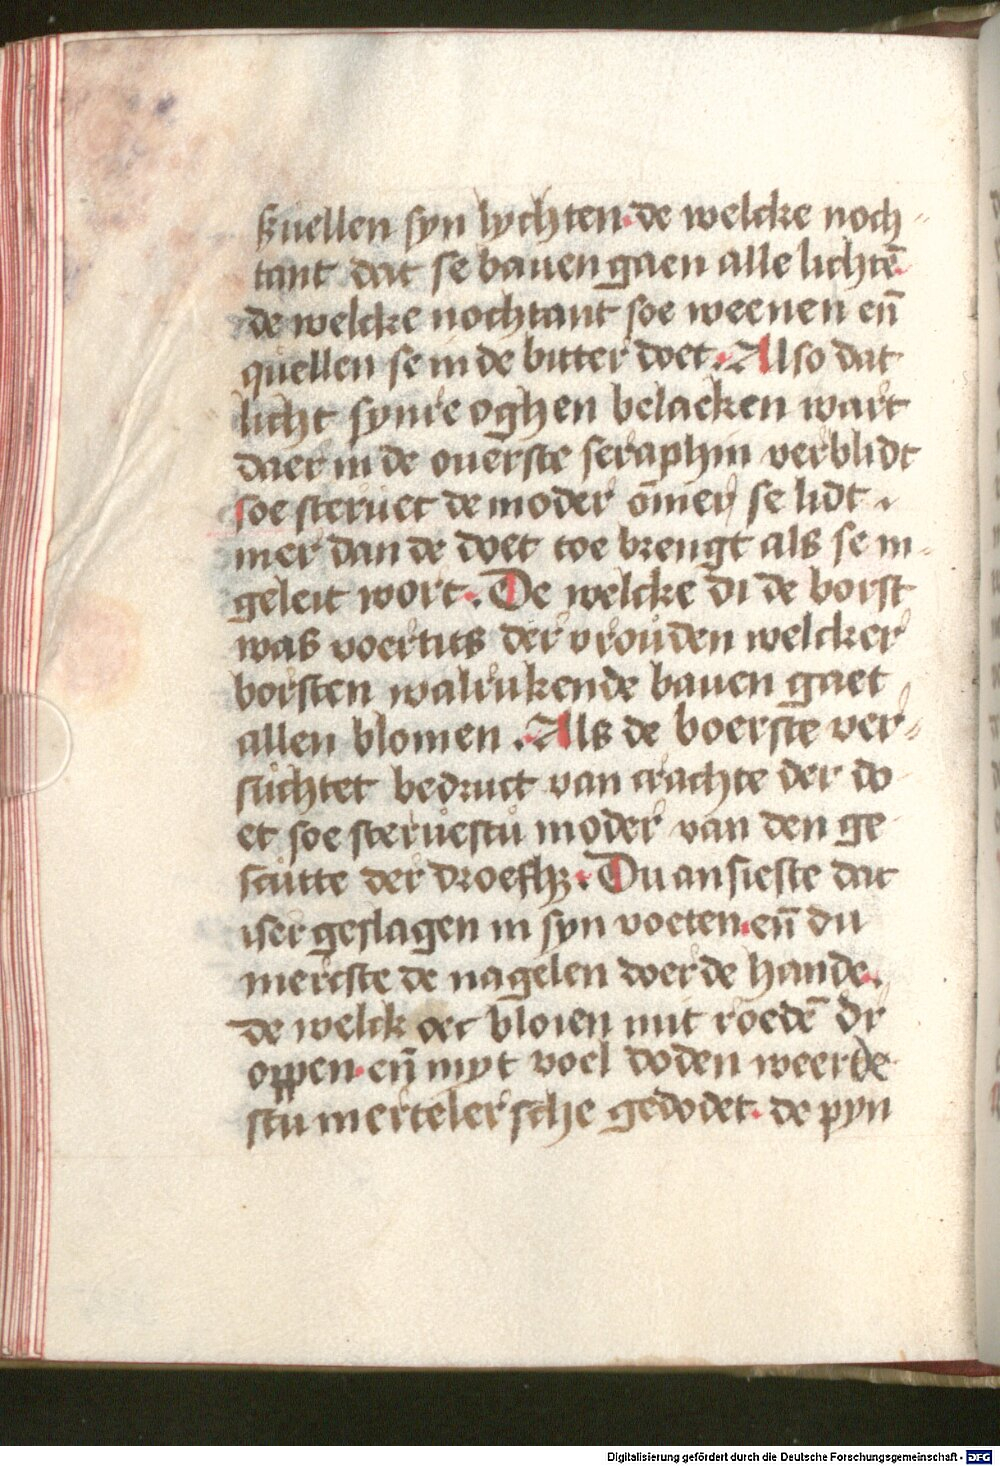 kuellen syn lychten· de welcke noch-
tant dat se bauen gaen alle lichtē·
de welcke nochtant soe weenen eñ
quellen se in de bitter doet· Also dat
licht synre oghen belacken wart
daer in de ouerste seraphin verblidt
soe steruet de moder om̄er se lidt
mer dan de doet toe brengt als se in-
geleit wort· De welcke di de borst
was voertits der vrouden welcker
borsten walrukende bauen gaet
allen blomen· Als de boerste ver-
suchtet bedruct van crachte der do
et soe steruestu moder van den ge
scutte der droefhz· Du ansieste dat
iser geslagen in syn voeten· eñ du
mercste de nagelen doer de hande·
de welck oec bloien mit roedē dr
oppen· eñ myt voel doden weerde
stu mertelersche gedodet· de pyn
Digitalisierung gefördert durch die Deutsche Forschungsgemeinschaft - DFG